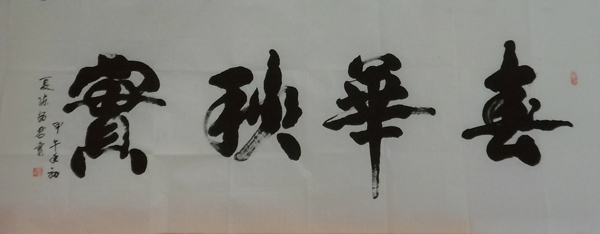 春華秋實
甲午年初
夏
書